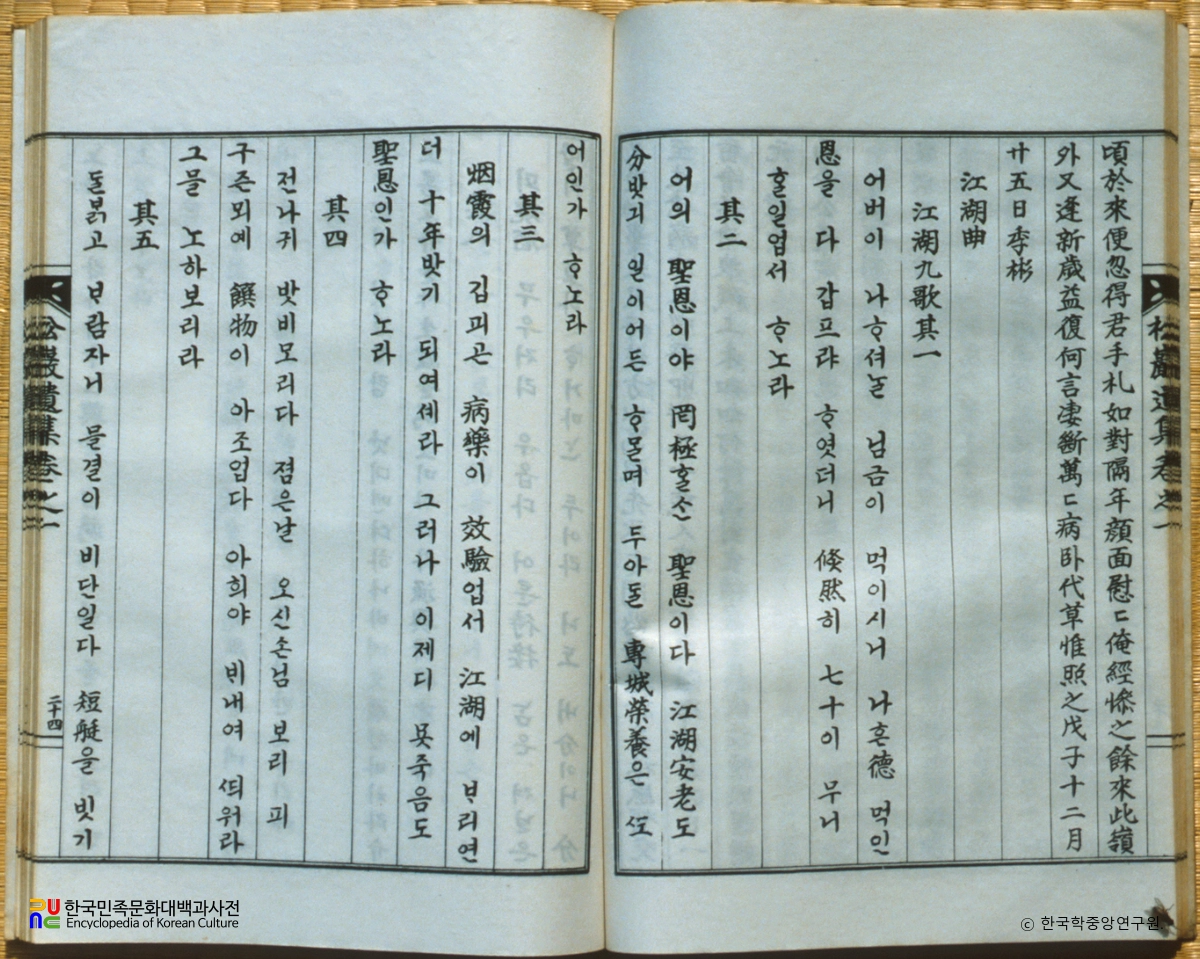 頃於來便忽得君手札如對隔年顔面慰〻俺經慘之餘來此嶺
外又逢新歲益復何言凄斷萬〻病卧代草惟照之戊子十二月
廿五日季彬
江湖曲
江湖九歌其一
어버이 나ᄒᆞ셔ᄂᆞᆯ 님금이 먹이시니 나흔德 먹인
恩을 다 갑프랴 ᄒᆞ엿더니 倏然히 七十이 무니
ᄒᆞᆯ일업서 ᄒᆞ노라
其二
어의 聖恩이야 罔極ᄒᆞᆯᄉᆞᆫ 聖恩이다 江湖安老도
分밧긔 일이어든 ᄒᆞᄆᆞᆯ며 두아ᄃᆞᆯ 專城榮養은 ᄯᅩ
어인가 ᄒᆞ노라
其三
烟霞의 깁픠곤 病藥이 效驗업서 江湖에 ᄇᆞ리연
더 十年밧기 되여셰라 그러나 이제디 못죽음도
聖恩인가 ᄒᆞ노라
其四
전나귀 밧비모리다 졈은날 오신손님 보리 피
구즌뫼예 饌物이 아조업다 아희야 ᄇᆡ내여 ᄯᅴ워라
그믈 노하보리라
其五
ᄃᆞᆯᄇᆞᆰ고 ᄇᆞ람자니 믈결이 비단일다 短艇을 빗기
松巖遺集卷之一
二十四
松巖遺集卷之一
한국민족문화대백과사전
Encyclopedia of Korean Culture
ⓒ 한국학중앙연구원